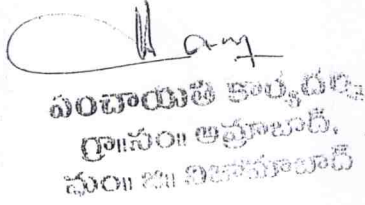 పంచాయితి కార్యదర్శి
గ్రా॥పం॥ అమ్రాబాద్,
మం॥ జి॥ నిజామాబాద్